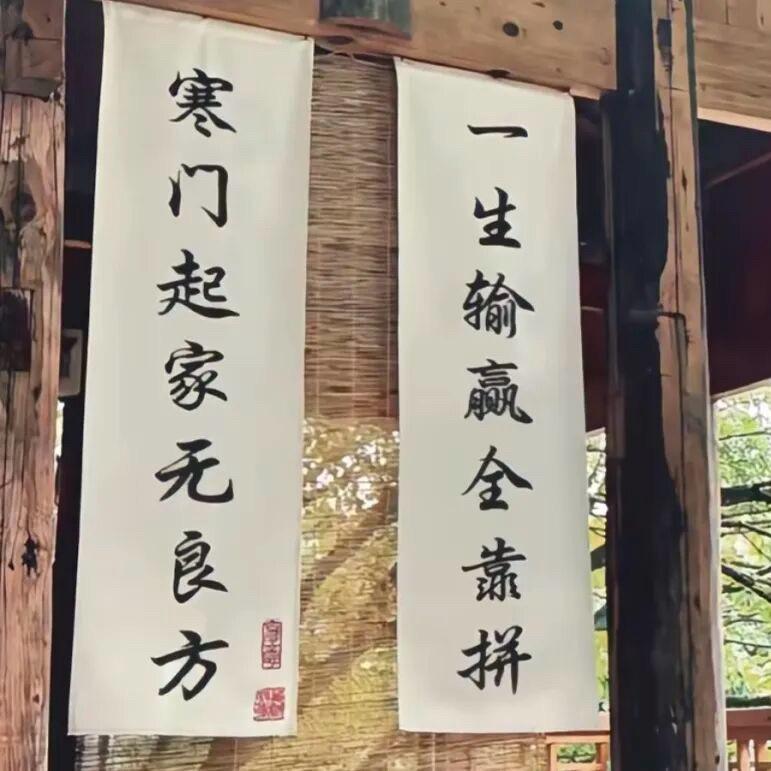 寒门起家无良方
一生输赢全靠拼